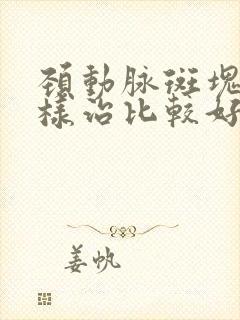 頚動脉斑塊
樣治比較好
姜帆